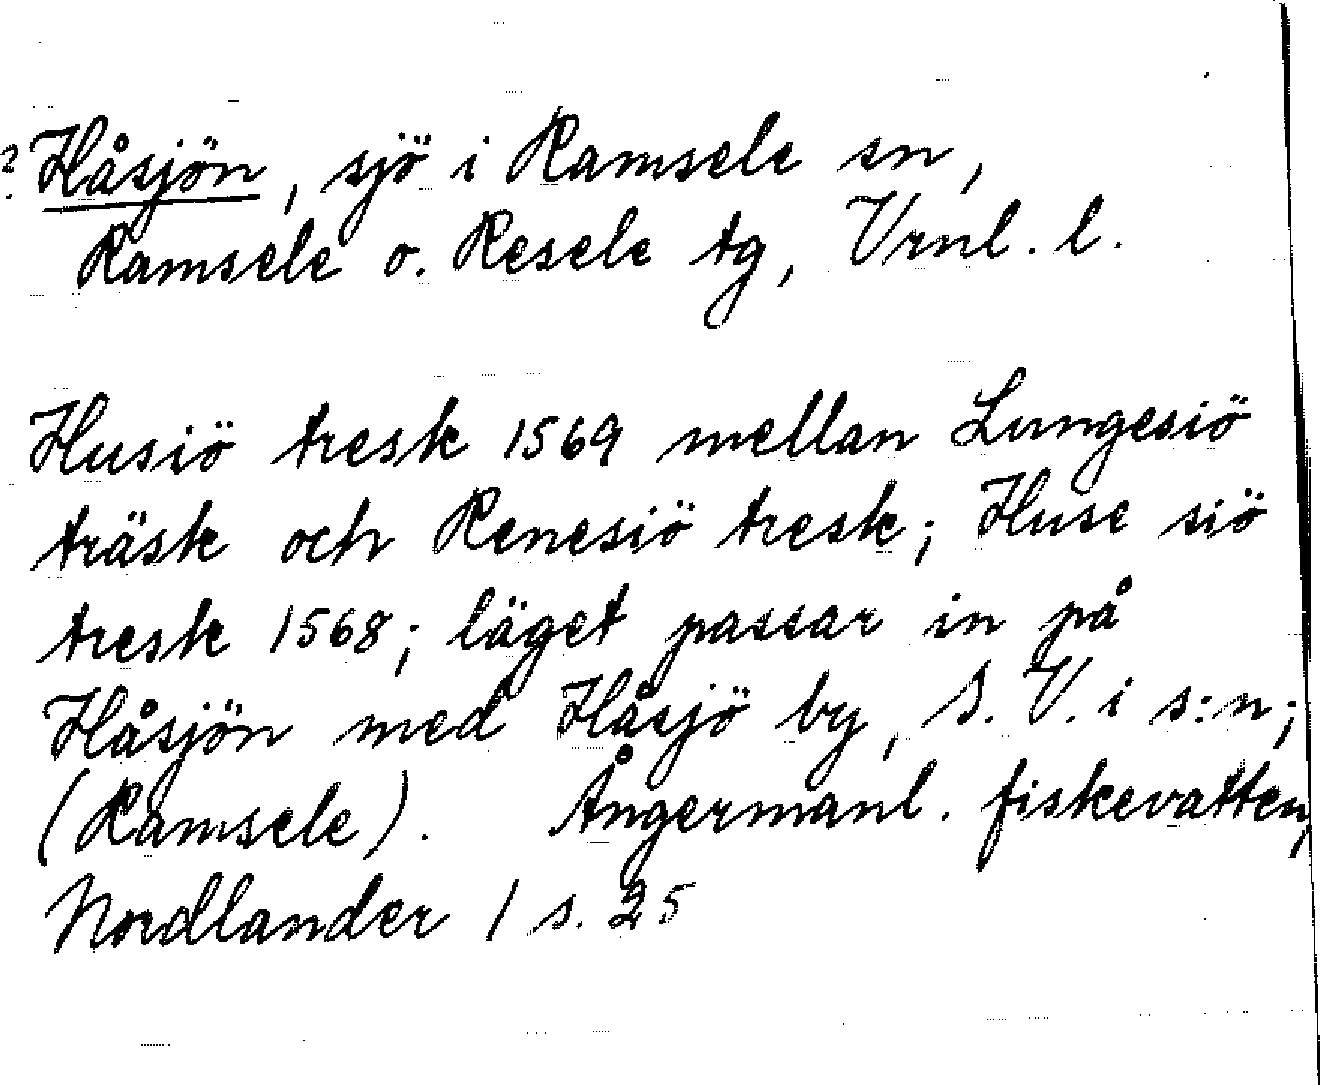 ? Håsjön, sjö i Ramsele sn,
Ramsele o. Resele tg, Vrnl. l.
Husiö tresk 1569 mellan Lungesiö
träsk och Renesiö tresk; Huse siö
tresk 1568; läget passar in på
Håsjön med Håsjö by, S. V. i s:n;
(Ramsele). Ångermanl. fiskevatten,
Nordlander 1 s. 25